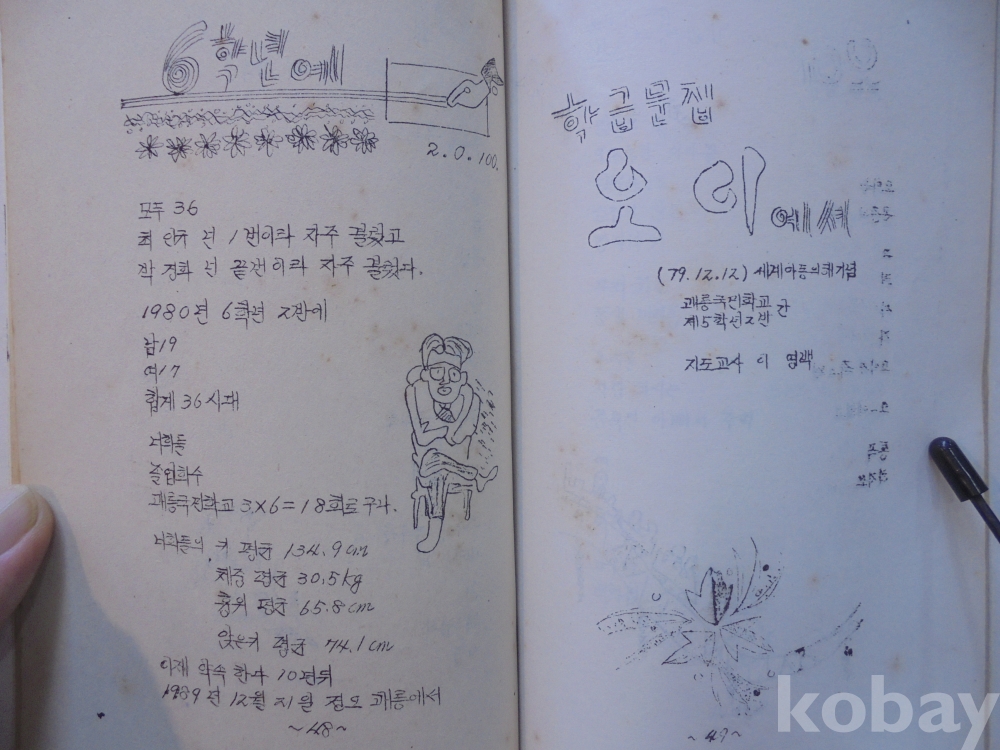 6학년에
2.0.100.
모두 36
최 인규 넌 1번이라 자주 골랐고
박 경화 넌 끝번이라 자주 골랐다.
1980년 6학년 2반에
남19
여17
합계 36시대
너희들
졸업회수
괘릉국민학교 3X6=18회로구나.
너희들의 키 평균 134.9cm
체중 평균 30.5kg
흉위 평균 65.8cm
앉은키 평균 74.1cm
이제 약속 한다 10년뒤
1989년 12월 31일 정오 괘릉에서
~48~
학급문집
오이에서
(79.12.12) 세계아동의해기념
괘릉국민학교
제5학년2반 간
지도교사 이
~47~
kobay